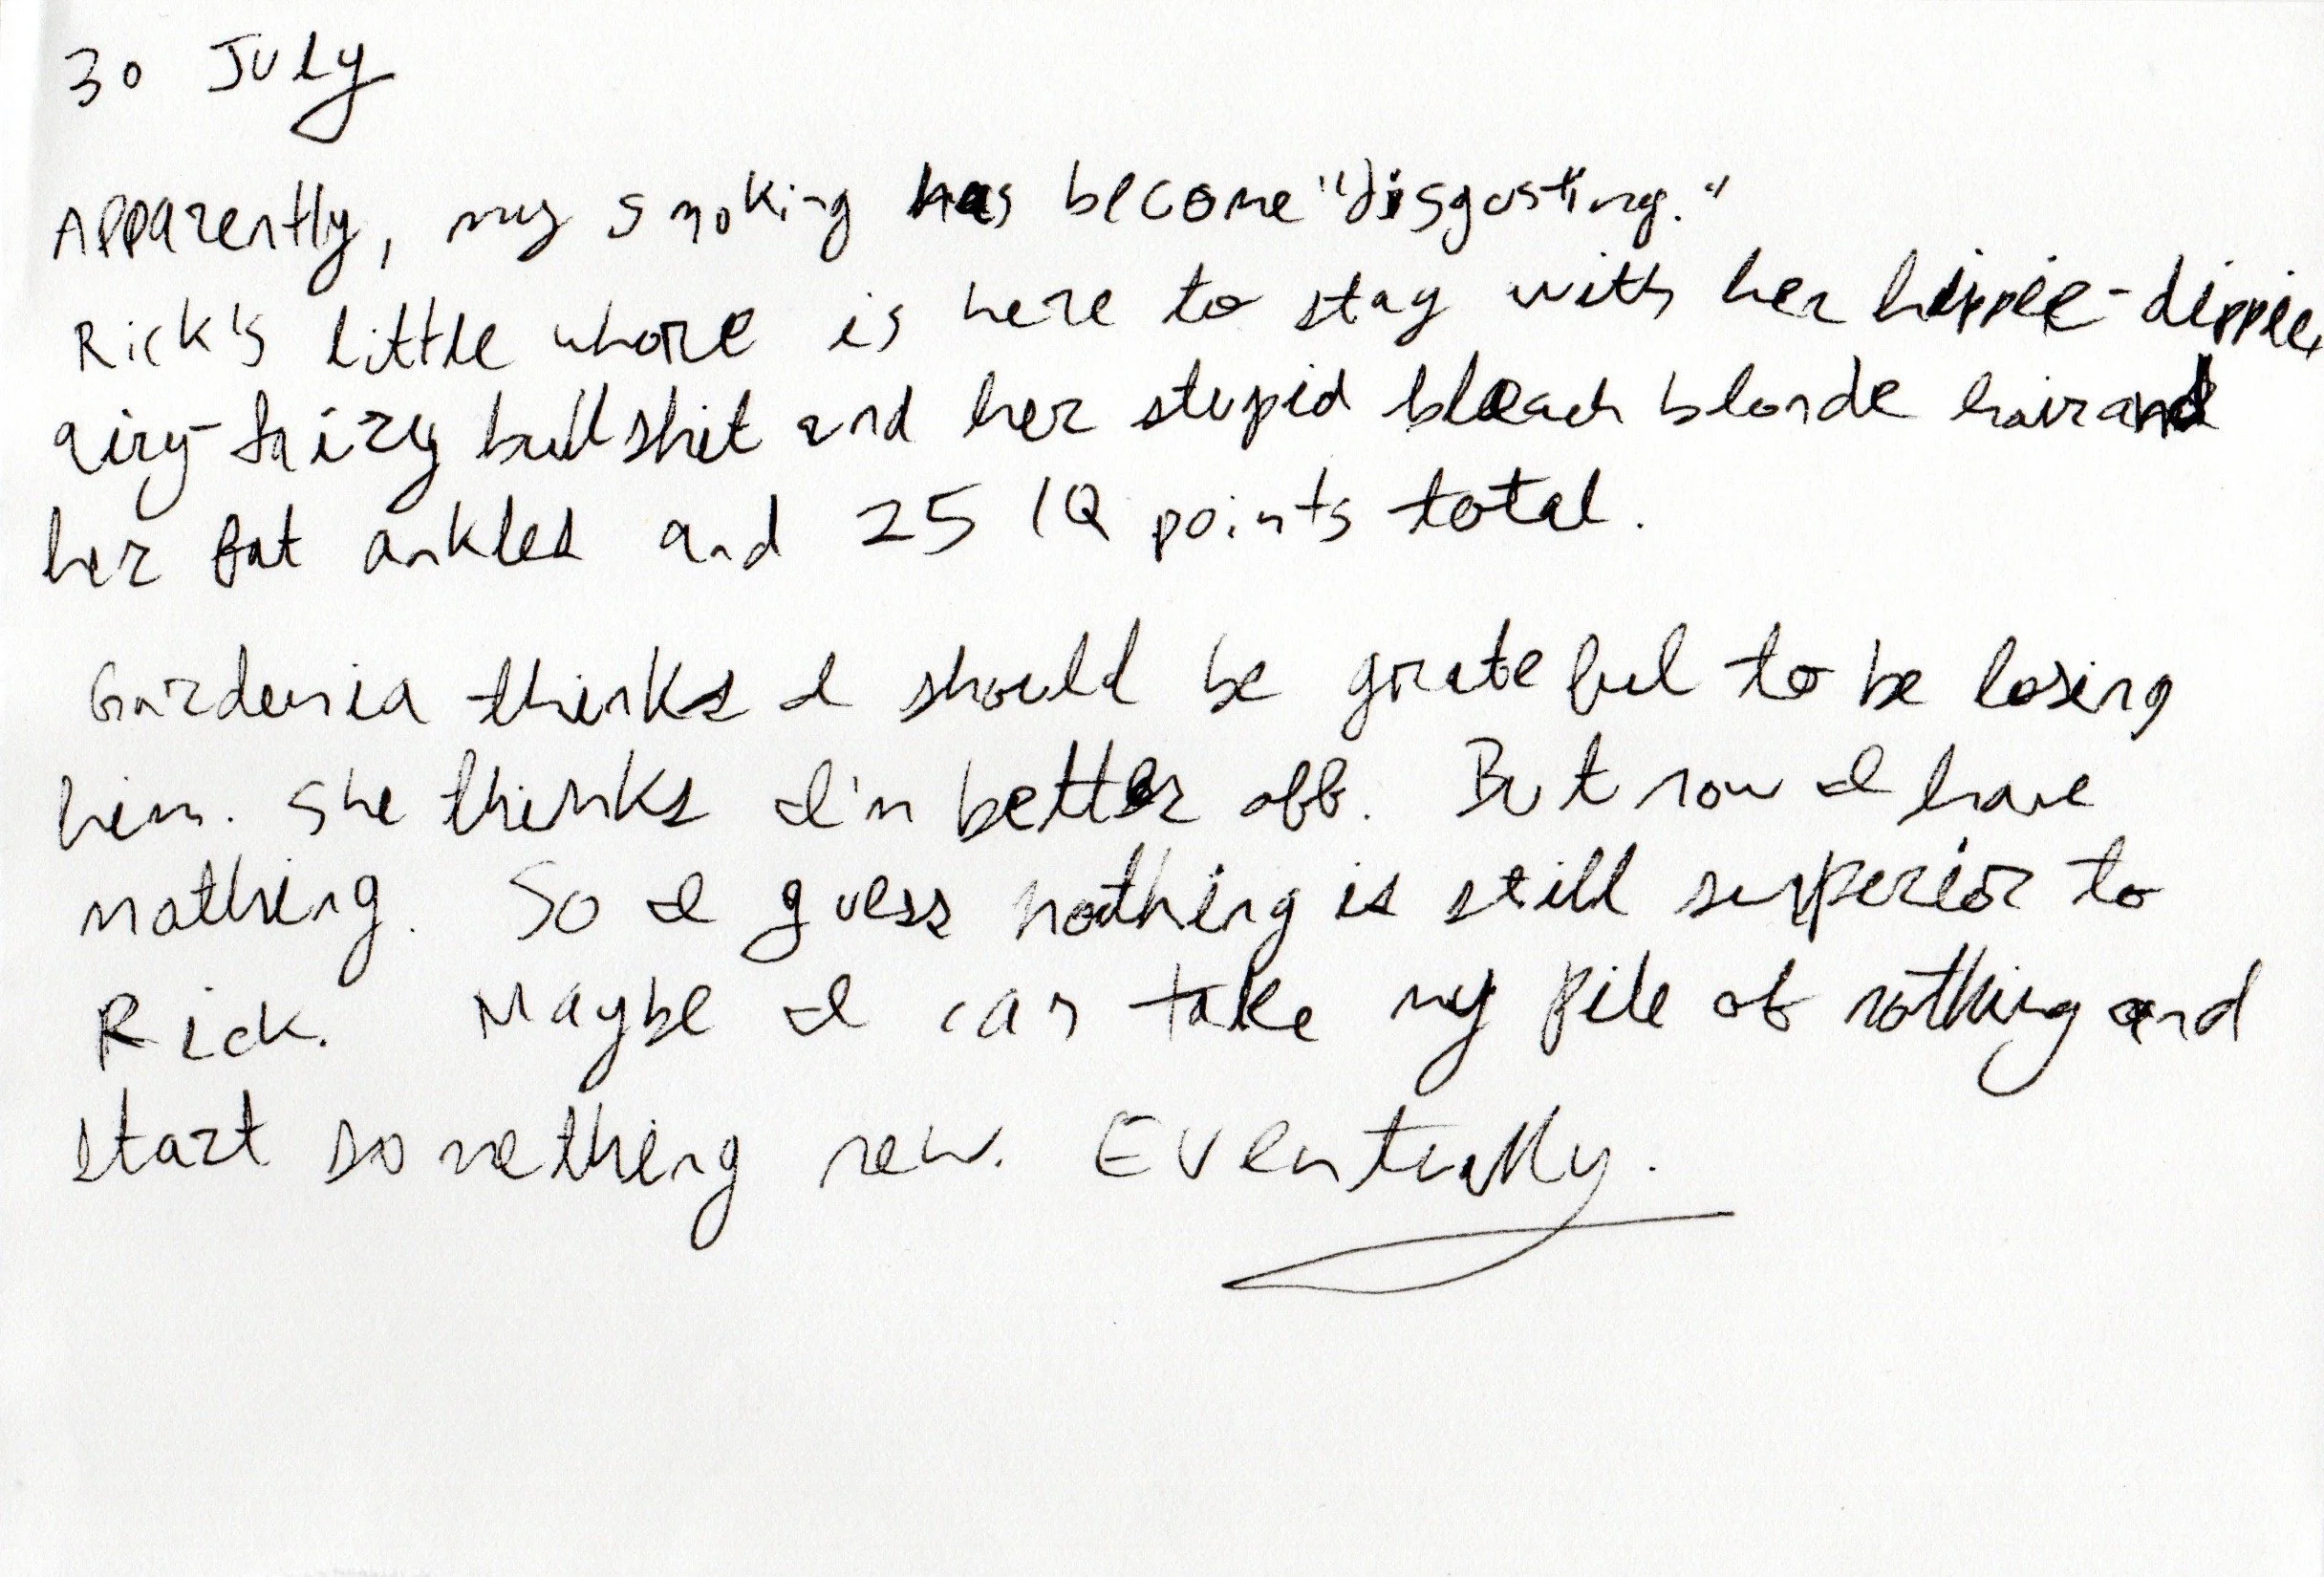 30 July
Apparently, my smoking has become "disgusting."
Rick's little whore is here to stay with her hippie-dippie,
airy-fairy bullshit and her stupid bleach blonde hair and
her fat ankles and 25 IQ points total.
Gardenia thinks I should be grateful to be losing
him. She thinks I'm better off. But now I have
nothing. So I guess nothing is still superior to
Rick. Maybe I can take my pile of nothing and
start something new. Eventually.